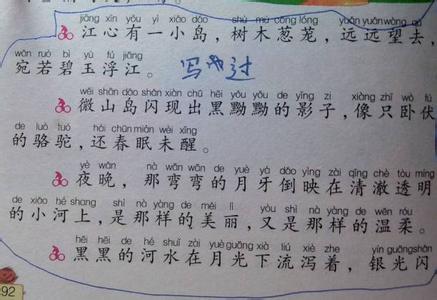 jiāng xīn yǒu yì xiǎo dǎo shù mù cōng lóng yuǎn yuǎn wàng qù
江心有一小岛,树木葱茏,远远望去,
wǎn ruò bì yù fú jiāng
宛若碧玉浮江。
wēi shān dǎo shǎn xiàn chū hēi yǒu yǒu de yǐng zi xiàng zhī wò fú
微山岛闪现出黑黝黝的影子,像只卧伏
de luò tuo hái chūn mián wèi xǐng
的骆驼,还春眠未醒。
yè wǎn nà wān wān de yuè yá dào yìng zài qīng chè tòu míng
夜晚,那弯弯的月牙倒映在清澈透明
de xiǎo hé shang shì nà yàng de měi lì yòu shì nà yàng de wēn róu
的小河上,是那样的美丽,又是那样的温柔。
hēi hēi de hé shuǐ zài yuè guāng xià liú xiè zhe yín guāng shǎn
黑黑的河水在月光下流泻着,银光闪
92